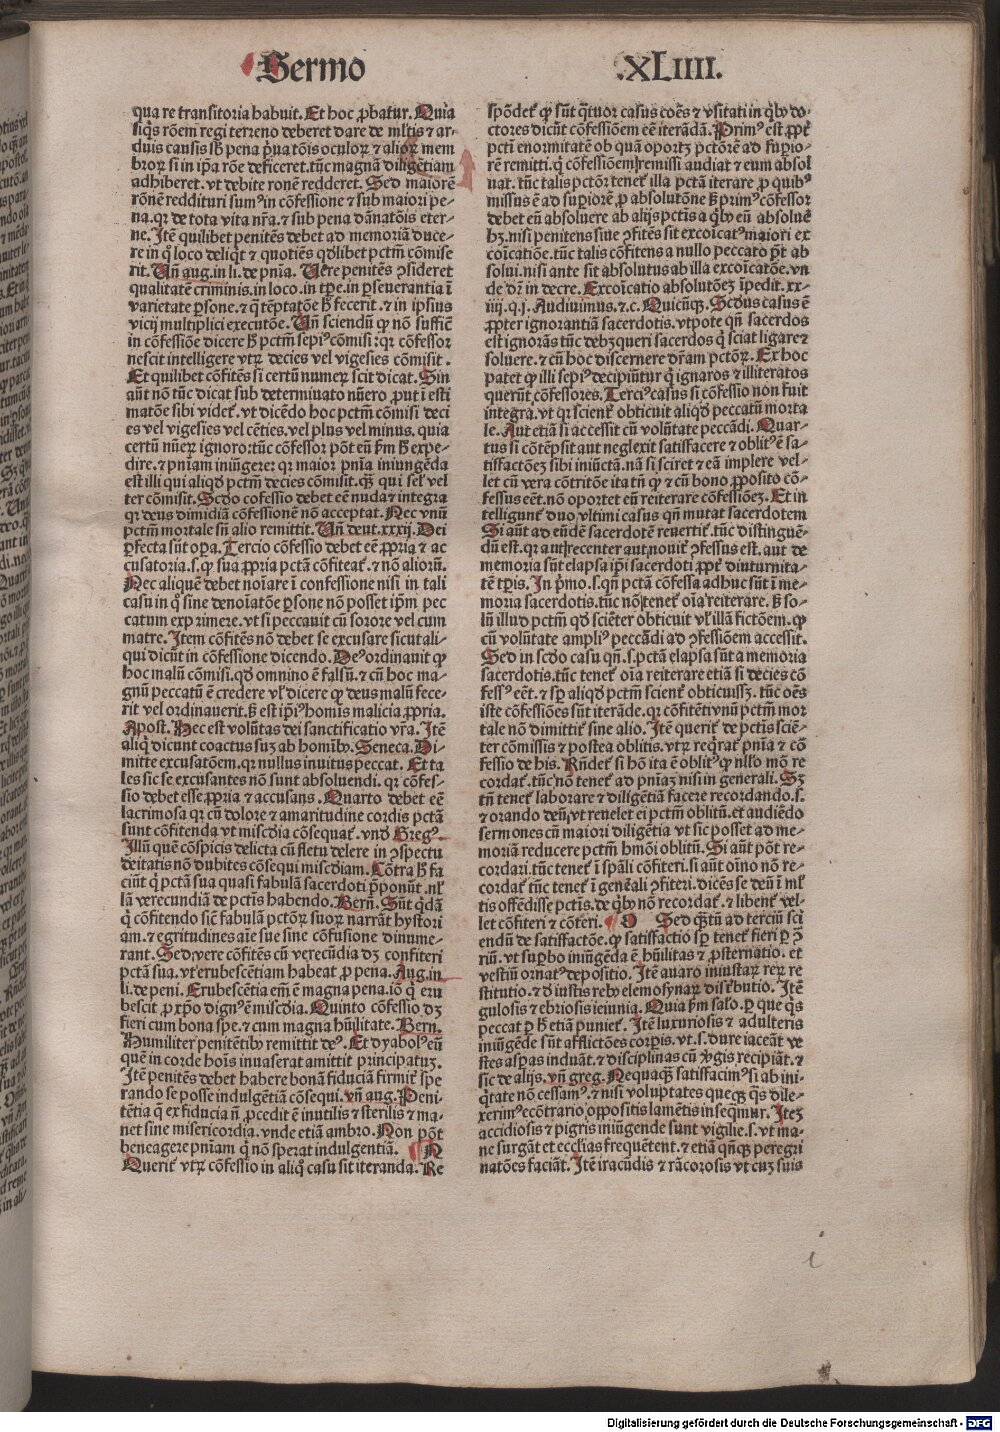 Sermo XLIIII.
qua re transitoria habuit. Et hoc ꝓbatur. Quia
siq̄s rōem regi terreno deberet dare de ml̄tis ⁊ ar⸗
duis causis sb̄ pena p̄ua tōis oculoꝝ ⁊ alioꝝ mem
broꝝ si in ip̄a rōe deficeret. tūc magnā diligētiam
adhiberet. vt debite ronē redderet. Sed maiorē
rōnē reddituri sumꝰ in cōfessione ⁊ sub maiori pe⸗
na. qꝛ de tota vita nr̄a. ⁊ sub pena dānatōis eter⸗
ne. Itē quilibet penitēs debet ad memoriā duce⸗
re in q̊ loco deliq̄t ⁊ quotiēs qd̄libet pctm̄ cōmise
rit. Vn̄ aug. in li. de pn̄ia. Uere penitēs ↄsideret
qualitatē criminis. in loco. in tp̄e. in ꝑseuerantia ī
varietate ꝑsone. ⁊ q̄ tēptatōe h̄ fecerit. ⁊ in ipsius
vicij multiplici executōe. Vn̄ sciendū ꝙ nō suffic̄
in cōfessiōe dicere h̄ pctm̄ sepiꝰ cōmisi: qꝛ cōfessor
nescit intelligere vtꝝ decies vel vigesies cōmisit.
Et quilibet cōfitēs si certū numeꝝ scit dicat. Sin
aūt nō tūc dicat sub determinato nūero ꝓut ī esti
matōe sibi videt̄. vt dicēdo hoc pctm̄ cōmisi deci
es vel vigesies vel cēties. vel plus vel minus. quia
certū nūeꝝ ignoro: tūc cōfessor pōt eū ẜm h̄ expe⸗
dire. ⁊ pn̄iam iniūgere: qꝛ maior pn̄ia iniungēda
est illi qui aliqd̄ pctm̄ decies cōmisit. qȝ qui sel̄ vel
ter cōmisit. Scd̄o cōfessio debet eē nuda ⁊ integra
qꝛ deus dimidiā cōfessionē nō acceptat. Nec vnū
pctm̄ mortale sn̄ alio remittit. Vn̄ deut. xxxij. Dei
ꝑfecta sūt oꝑa. Tercio cōfessio debet eē ꝓpria ⁊ ac
cusatoria. s. ꝙ sua ꝓpria pctā cōfiteat̄. ⁊ nō alioꝝ.
Nec aliquē debet noīare ī confessione nisi in tali
casu in q̊ sine denoīatōe ꝑsone nō posset ip̄m pec
catum exprimere. vt si peccauit cū sorore vel cum
matre. Item cōfitēs nō debet se excusare sicut ali⸗
qui dicūt in cōfessione dicendo. Deꝰ ordinauit ꝙ
hoc malū cōmisi. qd̄ omnino ē falsū. ⁊ cū hoc ma⸗
gnū peccatū ē credere vl̄ dicere ꝙ deus malū fece⸗
rit vel ordinauerit. ꝫ est ip̄iꝰ homīs malicia ꝓpria.
Apost. Hec est volūtas dei sanctificatio vr̄a. Itē
aliq̄ dicunt coactus suȝ ab homībꝰ. Seneca. Di⸗
mitte excusatōem. qꝛ nullus inuitus peccat. Et ta
les sic se excusantes nō sunt absoluendi. qꝛ cōfes⸗
sio debet esse ꝓpria ⁊ accusans. Quarto debet eē
lacrimosa qꝛ cū dolore ⁊ amaritudine cordis pctā
sunt cōfitenda vt miscd̄ia cōsequat̄. vnd̄ Gregꝰ.
Illū quē cōspicis delicta cū fletu delere in ↄspectu
deitatis nō dubites cōsequi miscd̄iam. Cōtra h̄ fa
ciūt q̄ pctā sua quasi fabulā sacerdoti ꝓponūt. nl̄
lā verecundiā de pctīs habendo. Bern̄. Sūt q̄dā
q̄ cōfitendo sic̄ fabulā pctōꝝ suoꝝ narrāt hystori
am. ⁊ egritudines aīe sue sine cōfusione dinume⸗
rant. Sed vere cōfitēs cū verecūdia dȝ confiteri
pctā sua. vt erubescētiam habeat ꝓ pena. Aug. in
li. de peni. Erubescētia em̄ ē magna pena. iō q̄ eru
bescit ꝓ xp̄o dignꝰ ē miscd̄ia. Quinto cōfessio dȝ
fieri cum bona spe. ⁊ cum magna hūilitate. Bern.
Humiliter penitētibꝰ remittit deꝰ. Et dyabolꝰ eū
quē in corde hoīs inuaserat amittit principatuȝ.
Itē penitēs debet habere bonā fiduciā firmit̄ spe
rando se posse indulgētiā cōsequi. vn̄ aug. Peni⸗
tētia q̄ ex fiducia n̄ ꝓcedit ē inutilis ⁊ sterilis ⁊ ma⸗
net sine misericordia. vnde etiā ambro. Non pōt
bene agere pn̄iam q̄ nō sperat indulgentiā. N
Querit̄ vtꝝ cōfessio in aliq̊ casu sit iteranda. Re
spōdet̄ ꝙ sūt q̄tuor casus coēs ⁊ vsitati in qͥbꝰ do⸗
ctores dicūt cōfessiōem eē iterādā. Primꝰ est ꝓpt̄
pctī enormitatē ob quā oportȝ pctōrē ad supio⸗
rē remitti. q̄ cōfessiōem remissi audiat ⁊ eum absol
uat. tūc talis pctōr tenet̄ illa pctā iterare ꝓ quibꝰ
missus ē ad supiorē ꝓ absolutōne ꝫ primꝰ cōfessor
debet eū absoluere ab alijs pctīs a qͥbꝰ eū absoluē
hȝ. nisi penitens siue ↄfitēs sit excoīcatꝰ maiori ex
coīcatiōe. tūc talis cōfitens a nullo peccato pōt ab
solui. nisi ante sit absolutus ab illa excoīcatōe. vn
de dr̄ in decre. Excoīcatio absolutōeȝ īpedit. xx⸗
iiij. q. j. Audiuimus. ⁊ c. Quicūqȝ. Scd̄us casus ē
ꝓpter ignorantiā sacerdotis. vtpote qn̄ sacerdos
est ignorās tūc debȝ queri sacerdos q̄ sciat ligare ⁊
soluere. ⁊ cū hoc discernere dr̄am pctōꝝ. Ex hoc
patet ꝙ illi sepiꝰ decipiūtur q̄ ignaros ⁊ illiteratos
querūt cōfessores. Terciꝰ casus si cōfessio non fuit
integra. vt qꝛ scient̄ obticuit aliqd̄ peccatū morta
le. Aut etiā si accessit cū volūtate peccādi. Quar⸗
tus si cōtēpsit aut neglexit satisfacere ⁊ oblitꝰ ē sa⸗
tisfactōeȝ sibi iniūctā. nā si sciret ⁊ eā implere vel⸗
let cū vera cōtritōe ita tn̄ ꝙ ⁊ cū bono ꝓposito cō⸗
fessus eēt. nō oportet eū reiterare cōfessiōeȝ. Et in
telligunt̄ duo vltimi casus qn̄ mutat sacerdotem
Si aūt ad eūdē sacerdotē reuertit̄. tūc distinguē⸗
dū est. qꝛ aut recenter aut nouit̄ ↄfessus est. aut de
memoria sūt elapsa ip̄i sacerdoti ꝓpt̄ diuturnita⸗
tē tp̄is. In pͥmo. s. qn̄ pctā cōfessa adhuc sūt ī me⸗
moria sacerdotis. tūc nō tenet̄ oīa reiterare. ꝫ so⸗
lū illud pctm̄ qd̄ sciēter obticuit vl̄ illā fictōem. ꝙ
cū volūtate ampliꝰ peccādi ad ↄfessiōem accessit.
Sed in scd̄o casu qn̄. s. pctā elapsa sūt a memoria
sacerdotis. tūc tenet̄ oīa reiterare etiā si decies cō
fessꝰ eēt. ⁊ sꝑ aliqd̄ pctm̄ scient̄ obticuissȝ. tūc oēs
iste cōfessiōes sūt iterāde. qꝛ cōfitēti vnū pctm̄ mor
tale nō dimittit̄ sine alio. Itē querit̄ de pctīs sciē⸗
ter cōmissis ⁊ postea oblitis. vtꝝ req̄rat̄ pn̄ia ⁊ cō
fessio de his. Rn̄det̄ si hō ita ē oblitꝰ ꝙ nl̄lo mō re
cordat̄. tūc nō tenet̄ ad pn̄iaȝ nisi in generali. Sȝ
tn̄ tenet̄ laborare ⁊ diligētiā facere recordando. s.
⁊ orando deū. vt reuelet ei pctm̄ oblitū. et audiēdo
sermones cū maiori diligētia vt sic posset ad me⸗
moriā reducere pctm̄ hmōi oblitū. Si aūt pōt re⸗
cordari. tūc tenet̄ ī spāli cōfiteri. si aūt oīno nō re⸗
cordat̄ tūc tenet̄ ī genēali ↄfiteri. dicēs se deū ī ml̄
tis offēdisse pctīs. de qͥbꝰ nō recordat̄. ⁊ libent̄ vel⸗
let cōfiteri ⁊ cōteri. O Sed qȝtū ad terciū sci
endū de satisfactōe. ꝙ satisfactio sꝑ tenet̄ fieri ꝑ ↄ̄
riū. vt supbo iniūgēda ē hūilitas ⁊ ꝓsternatio. et
vestiū ornatꝰ depositio. Itē auaro iniustaꝝ reꝝ re
stitutio. ⁊ d̄ iustis rebꝰ elemosynaꝝ distributio. Itē
gulosis ⁊ ebriosis ieiunia. Quia ẜm salo. ꝑ que q̄s
peccat ꝑ h̄ etiā puniet̄. Itē luxuriosis ⁊ adulteris
iniūgēde sūt afflictōes corꝑis. vt. s. dure iaceāt ve
stes asꝑas induāt. ⁊ disciplinas cū v̄gis recipiāt. ⁊
sic de alijs. vn̄ greg. Nequaqȝ satisfacimꝰ si ab ini⸗
q̄tate nō cessamꝰ. ⁊ nisi voluptates quecqȝ q̄s dile⸗
xerimꝰ ecōtrario oppositis lamētis inseq̄mur. Iteȝ
accidiosis ⁊ pigris iniūgende sunt vigilie. s. vt ma⸗
ne surgāt et ecclīas frequētent. ⁊ etiā qn̄qȝ peregri
natōes faciāt. Itē iracūdis ⁊ rācorosis vt cuȝ suis
i
Digitalisierung gefördert durch die Deutsche Forschungsgemeinschaft - DFG